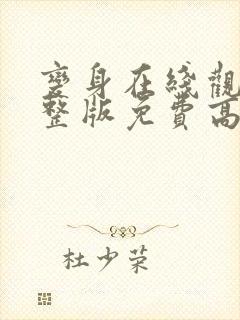 變身在綫觀
整版免費高
杜少荣